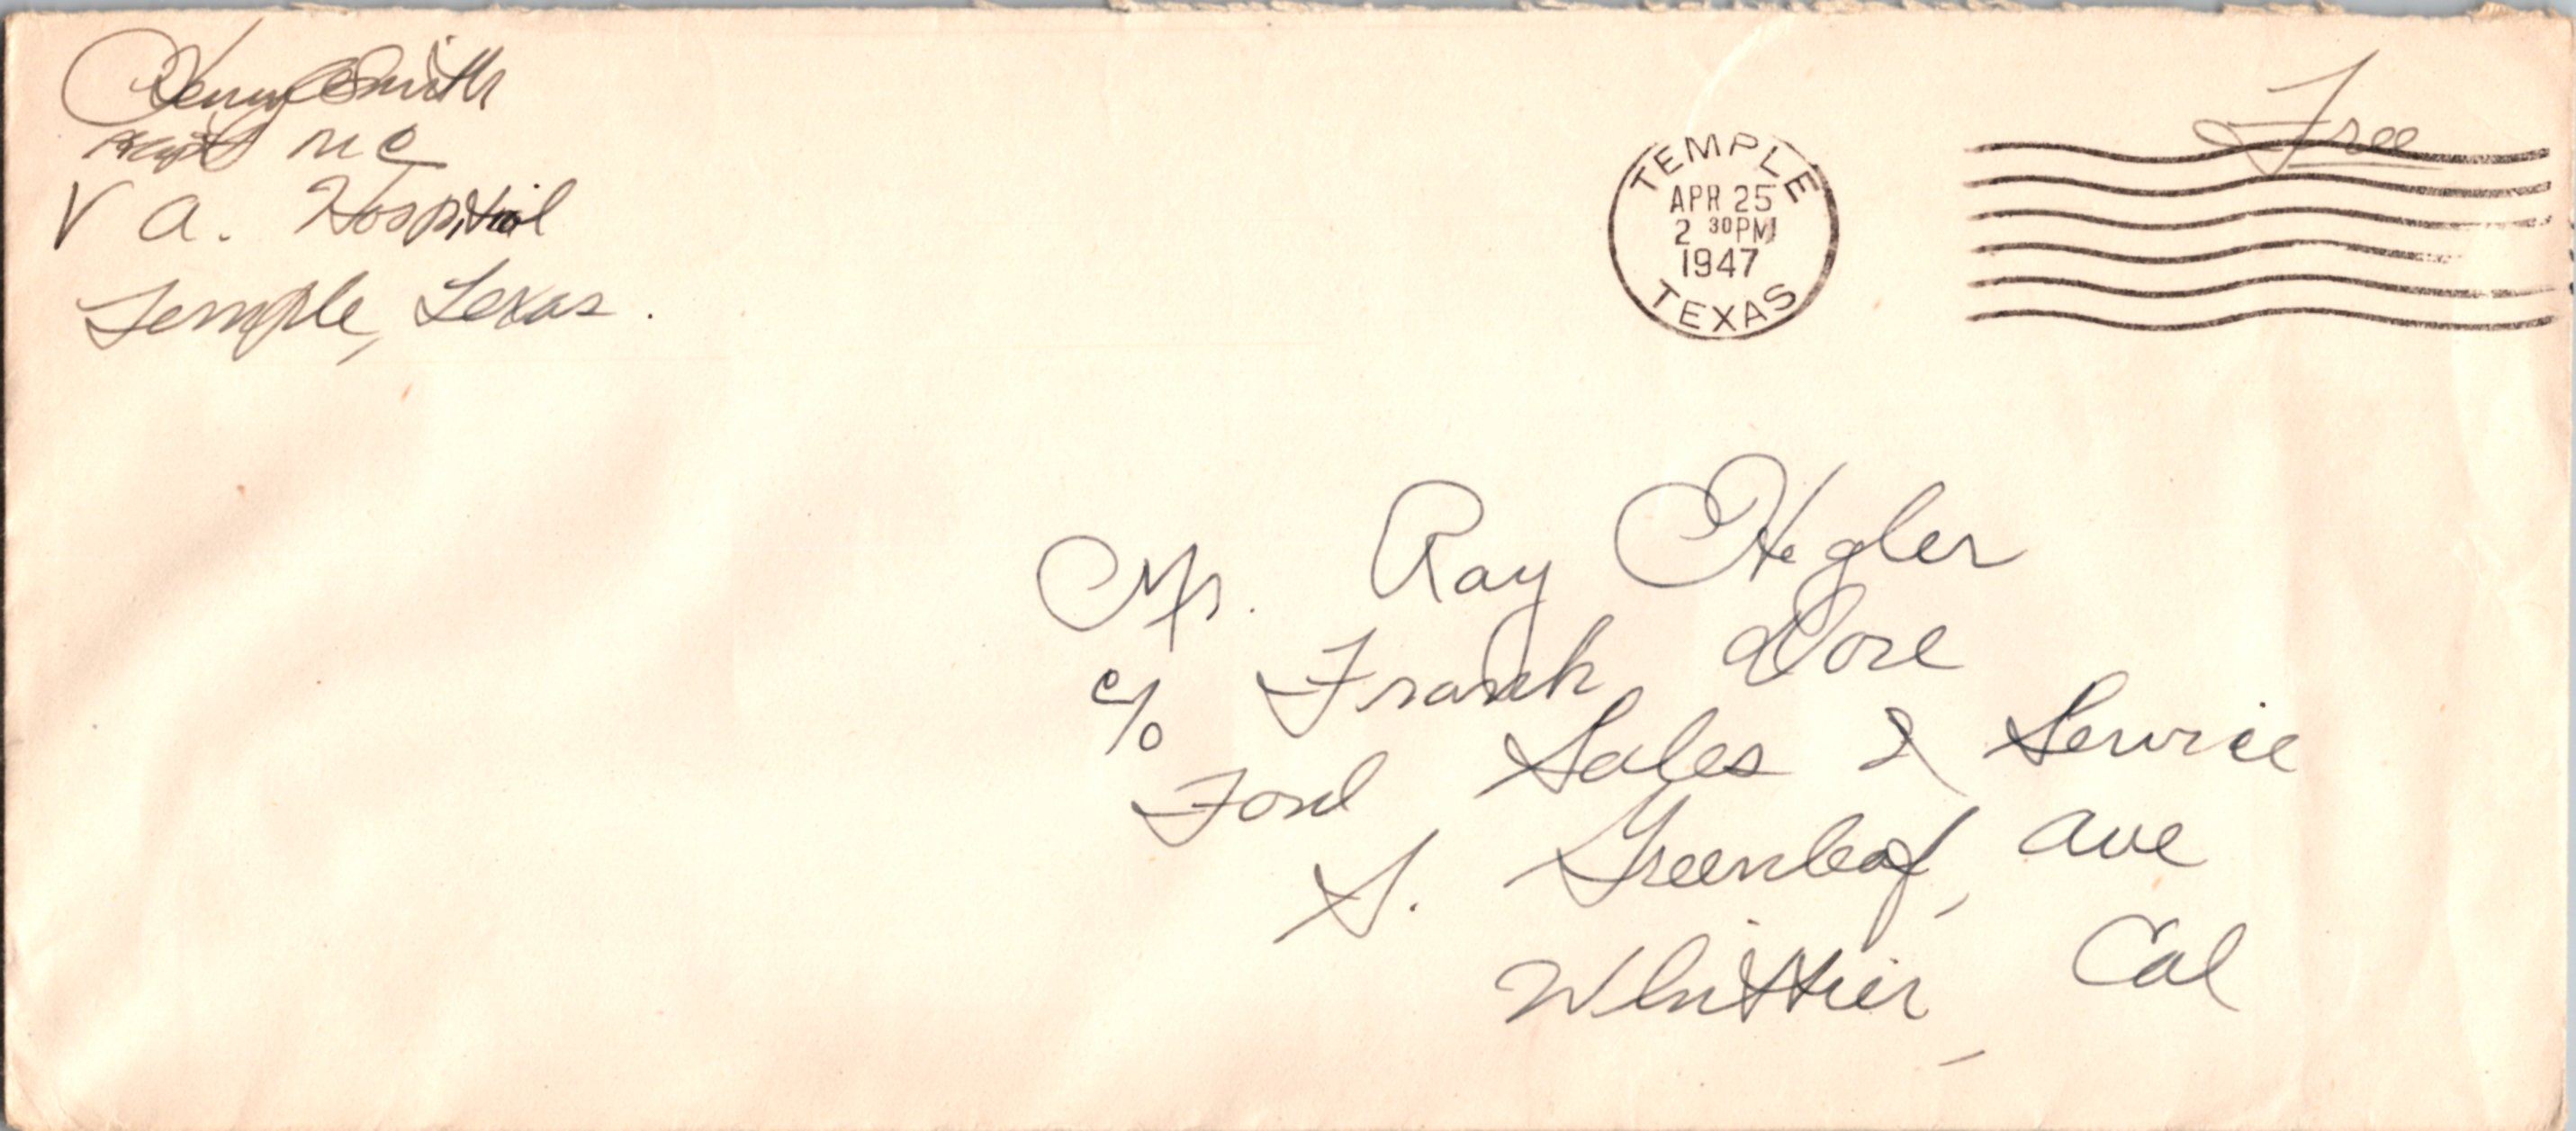 Henry Smith
M C
V A. Hospital
Temple, Texas.
Free
TEMPLE
APR 25
2 30 PM
1947
TEXAS
Mr. Ray Hegler
c/o Frank Dore
Ford Sales & Service
S. Greenleaf, Ave
Whittier, Cal